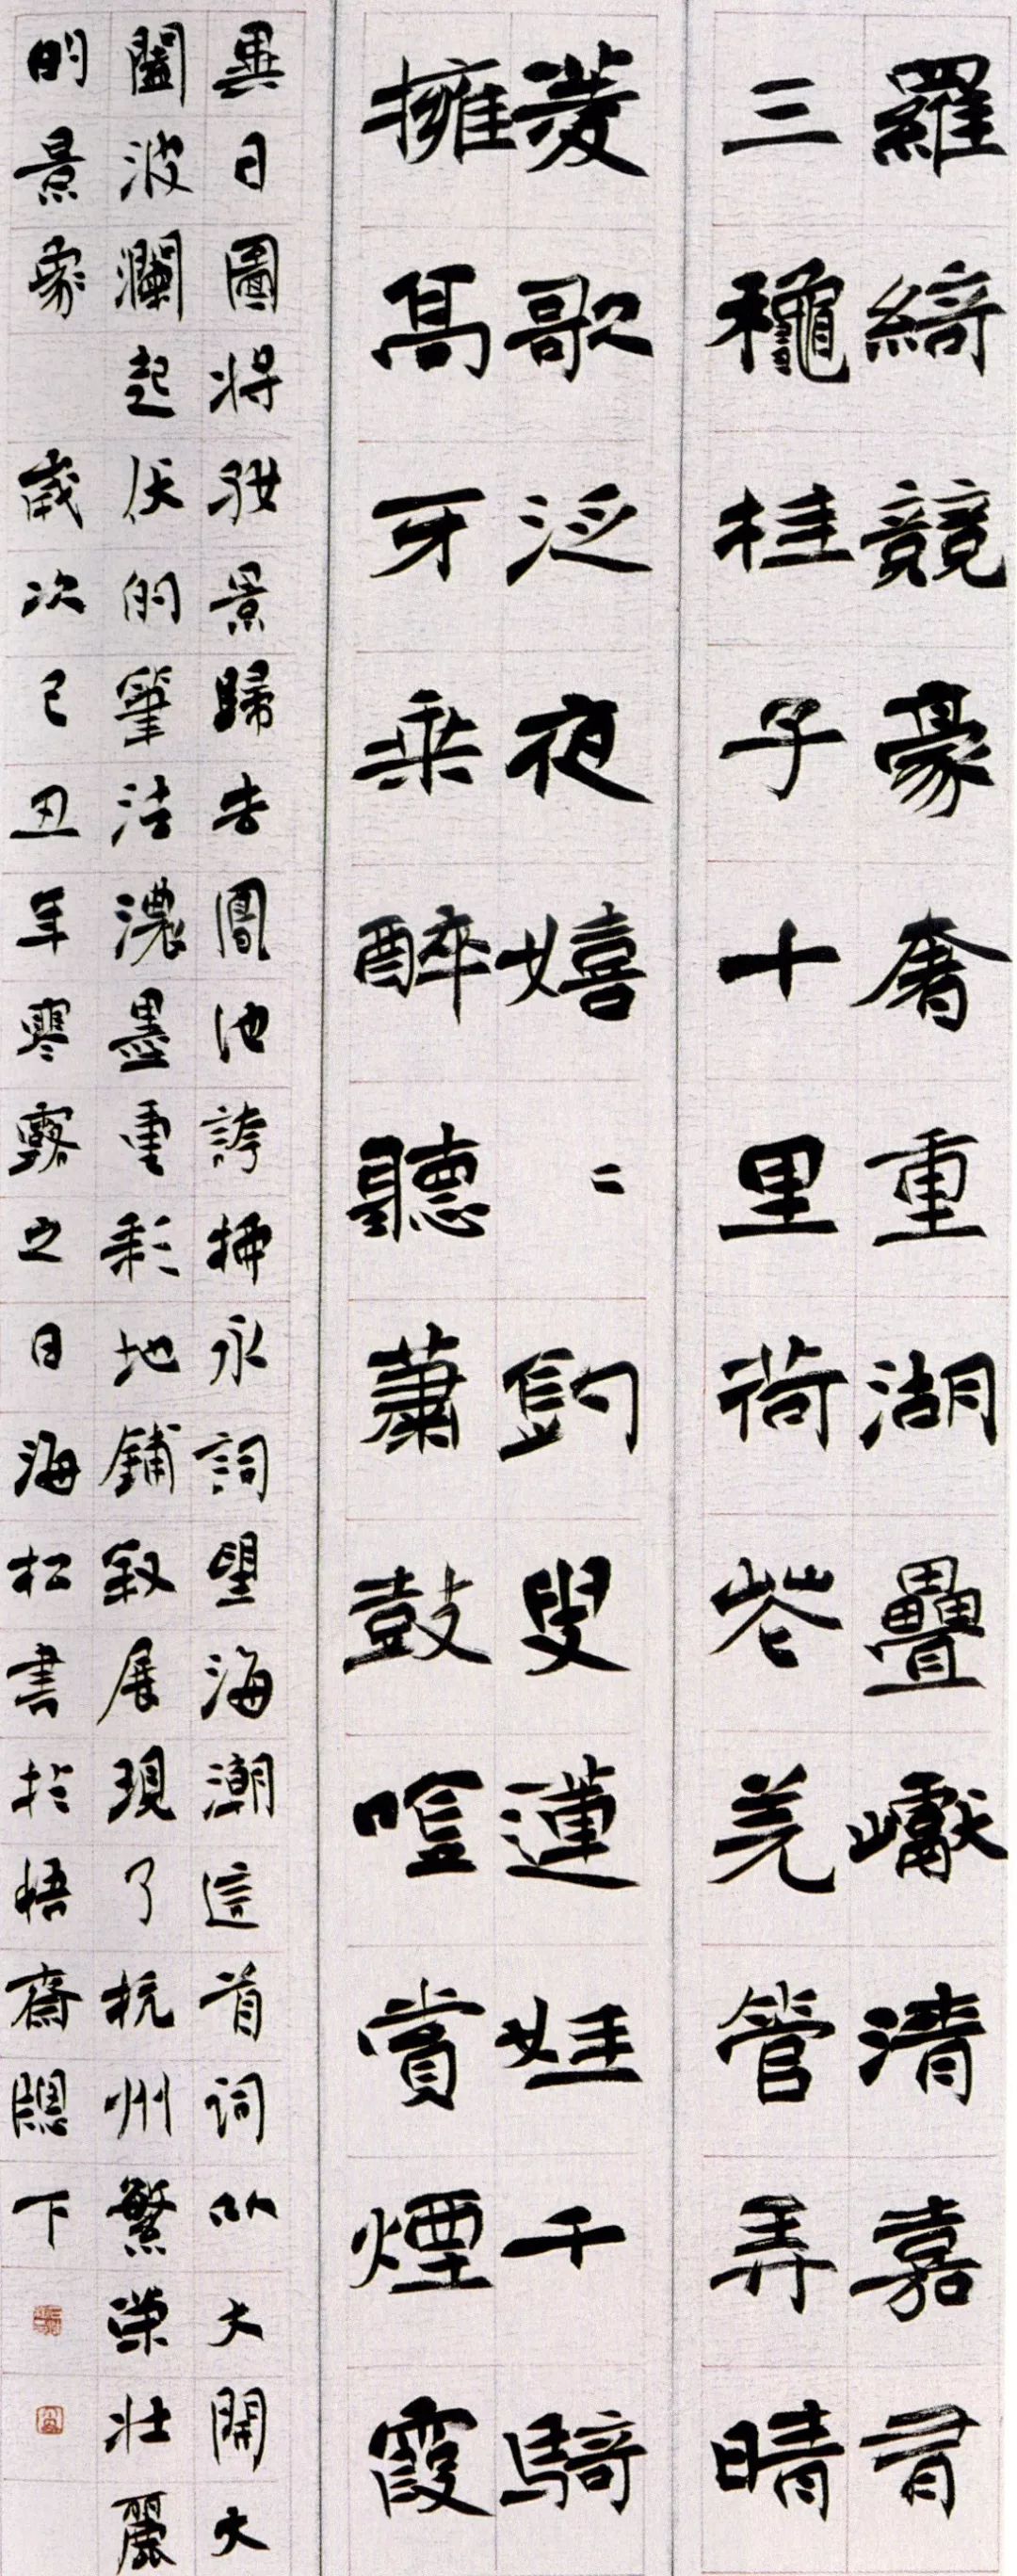 羅綺競豪奢重湖疊巘清嘉有
三穐桂子十里荷花羌管弄晴
菱歌泛夜嬉〻釣叟蓮娃千騎
擁高牙乘醉聽蕭鼓唫賞煙霞
異日圖將好景歸去鳳池誇柳永詞望海潮這首词以大開大
闔波瀾起伏的筆法濃墨重彩地鋪叙展現了杭州繁榮壯麗
的景象 歲次己丑年寒露之日海松書於悟齋牕下